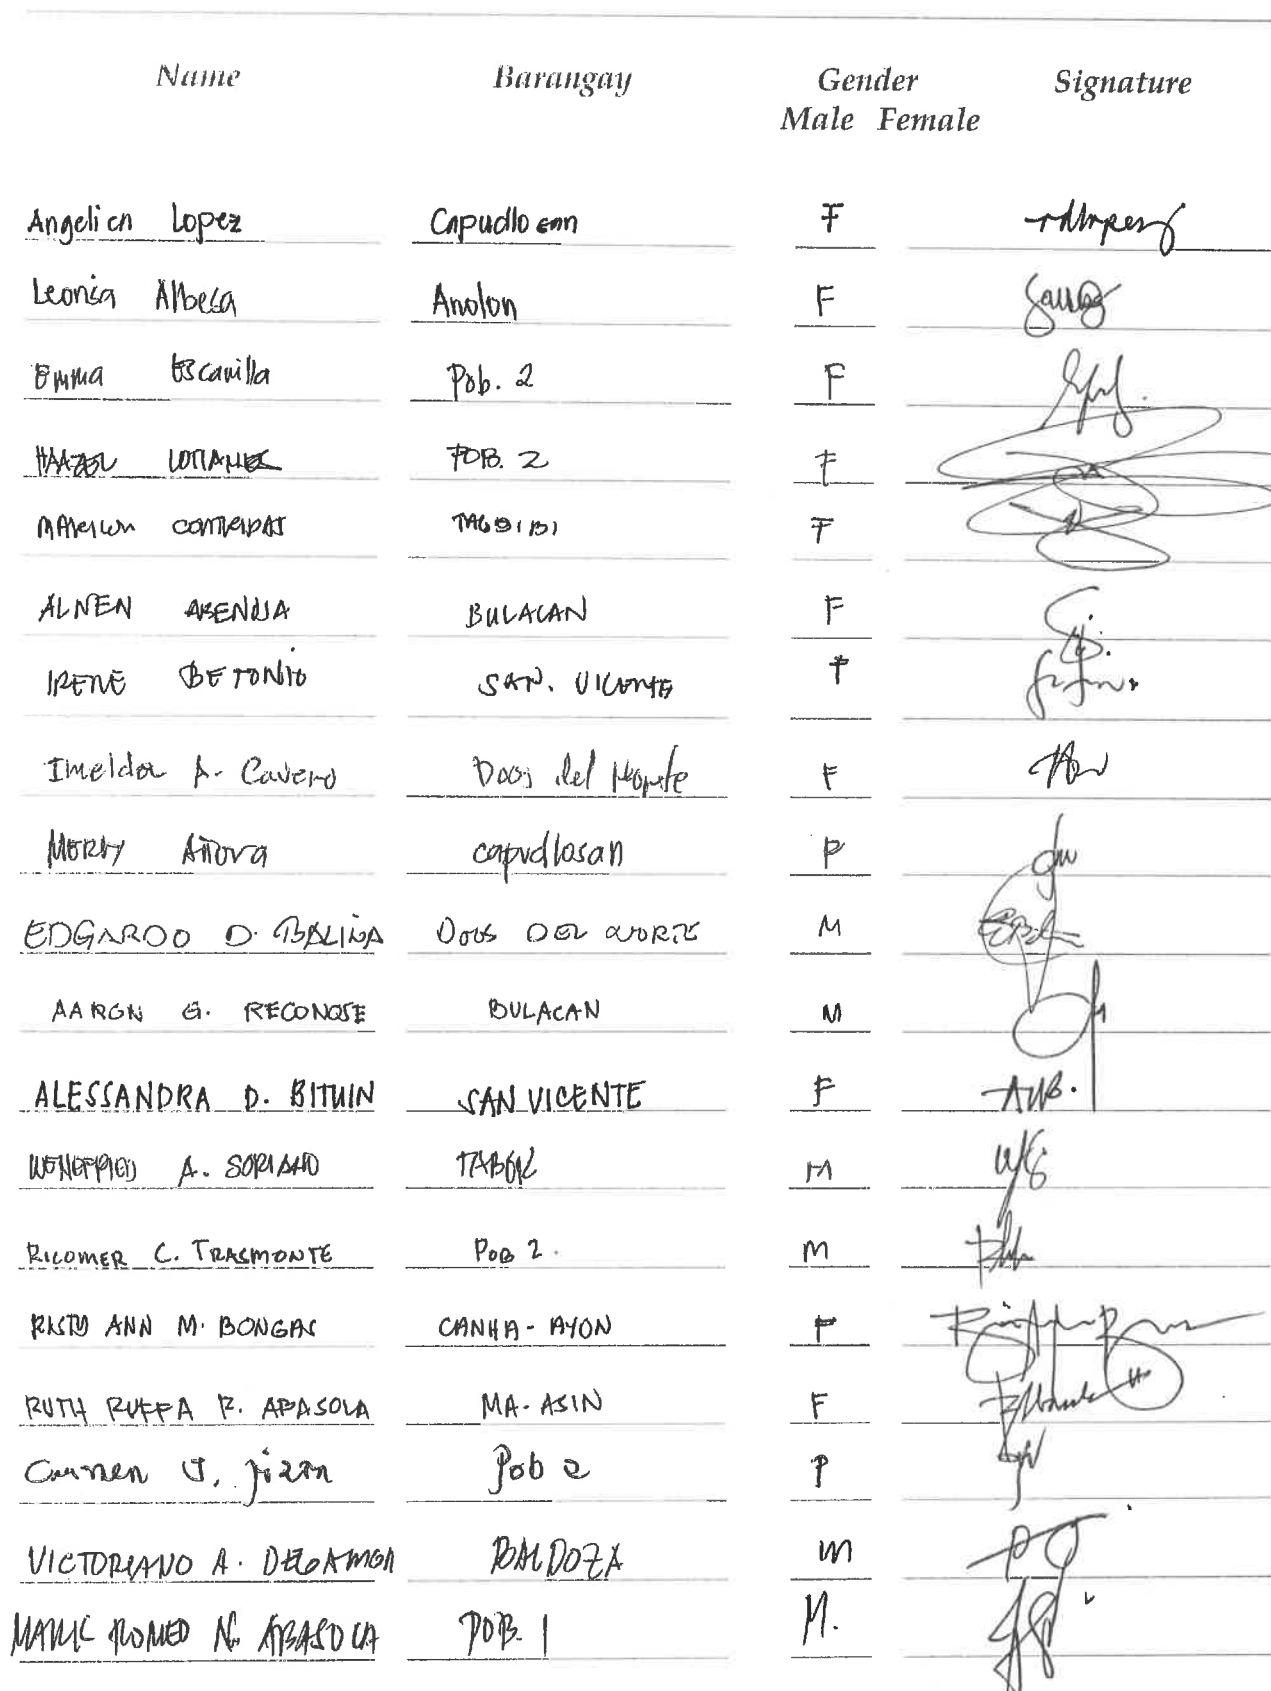 Name Barangay Gender Signature
Male Female
Angelica Lopez Capudlosan F
Leonisa Albesa Anolon F
Emma Escarilla Pob. 2 F
HAAZEL POB. 2 F
TAGBIBI F
ALNEN ABENDIA BULACAN F
IRENE BETONIO SAN. VICENTE F
Imelda A. Cavero Doos del Norte F
MERLY Añova capudlosan F
EDGARDO D. BALIÑA DOOS DEL NORTE M
AARON G. RECONOSE BULACAN M
ALESSANDRA D. BITUIN SAN VICENTE F
A. SORIANO TABOK M
RICOMER C. TRASMONTE POB 2. M
ANN M. BONGAS CANHA-AYON F
RUTH RUFFA R. APASOLA MA-ASIN F
Carmen J. Jizon Pob 2 F
VICTORIANO A. BALDOZA M
MARK ROMEO N. ABASOLA POB. 1 M.